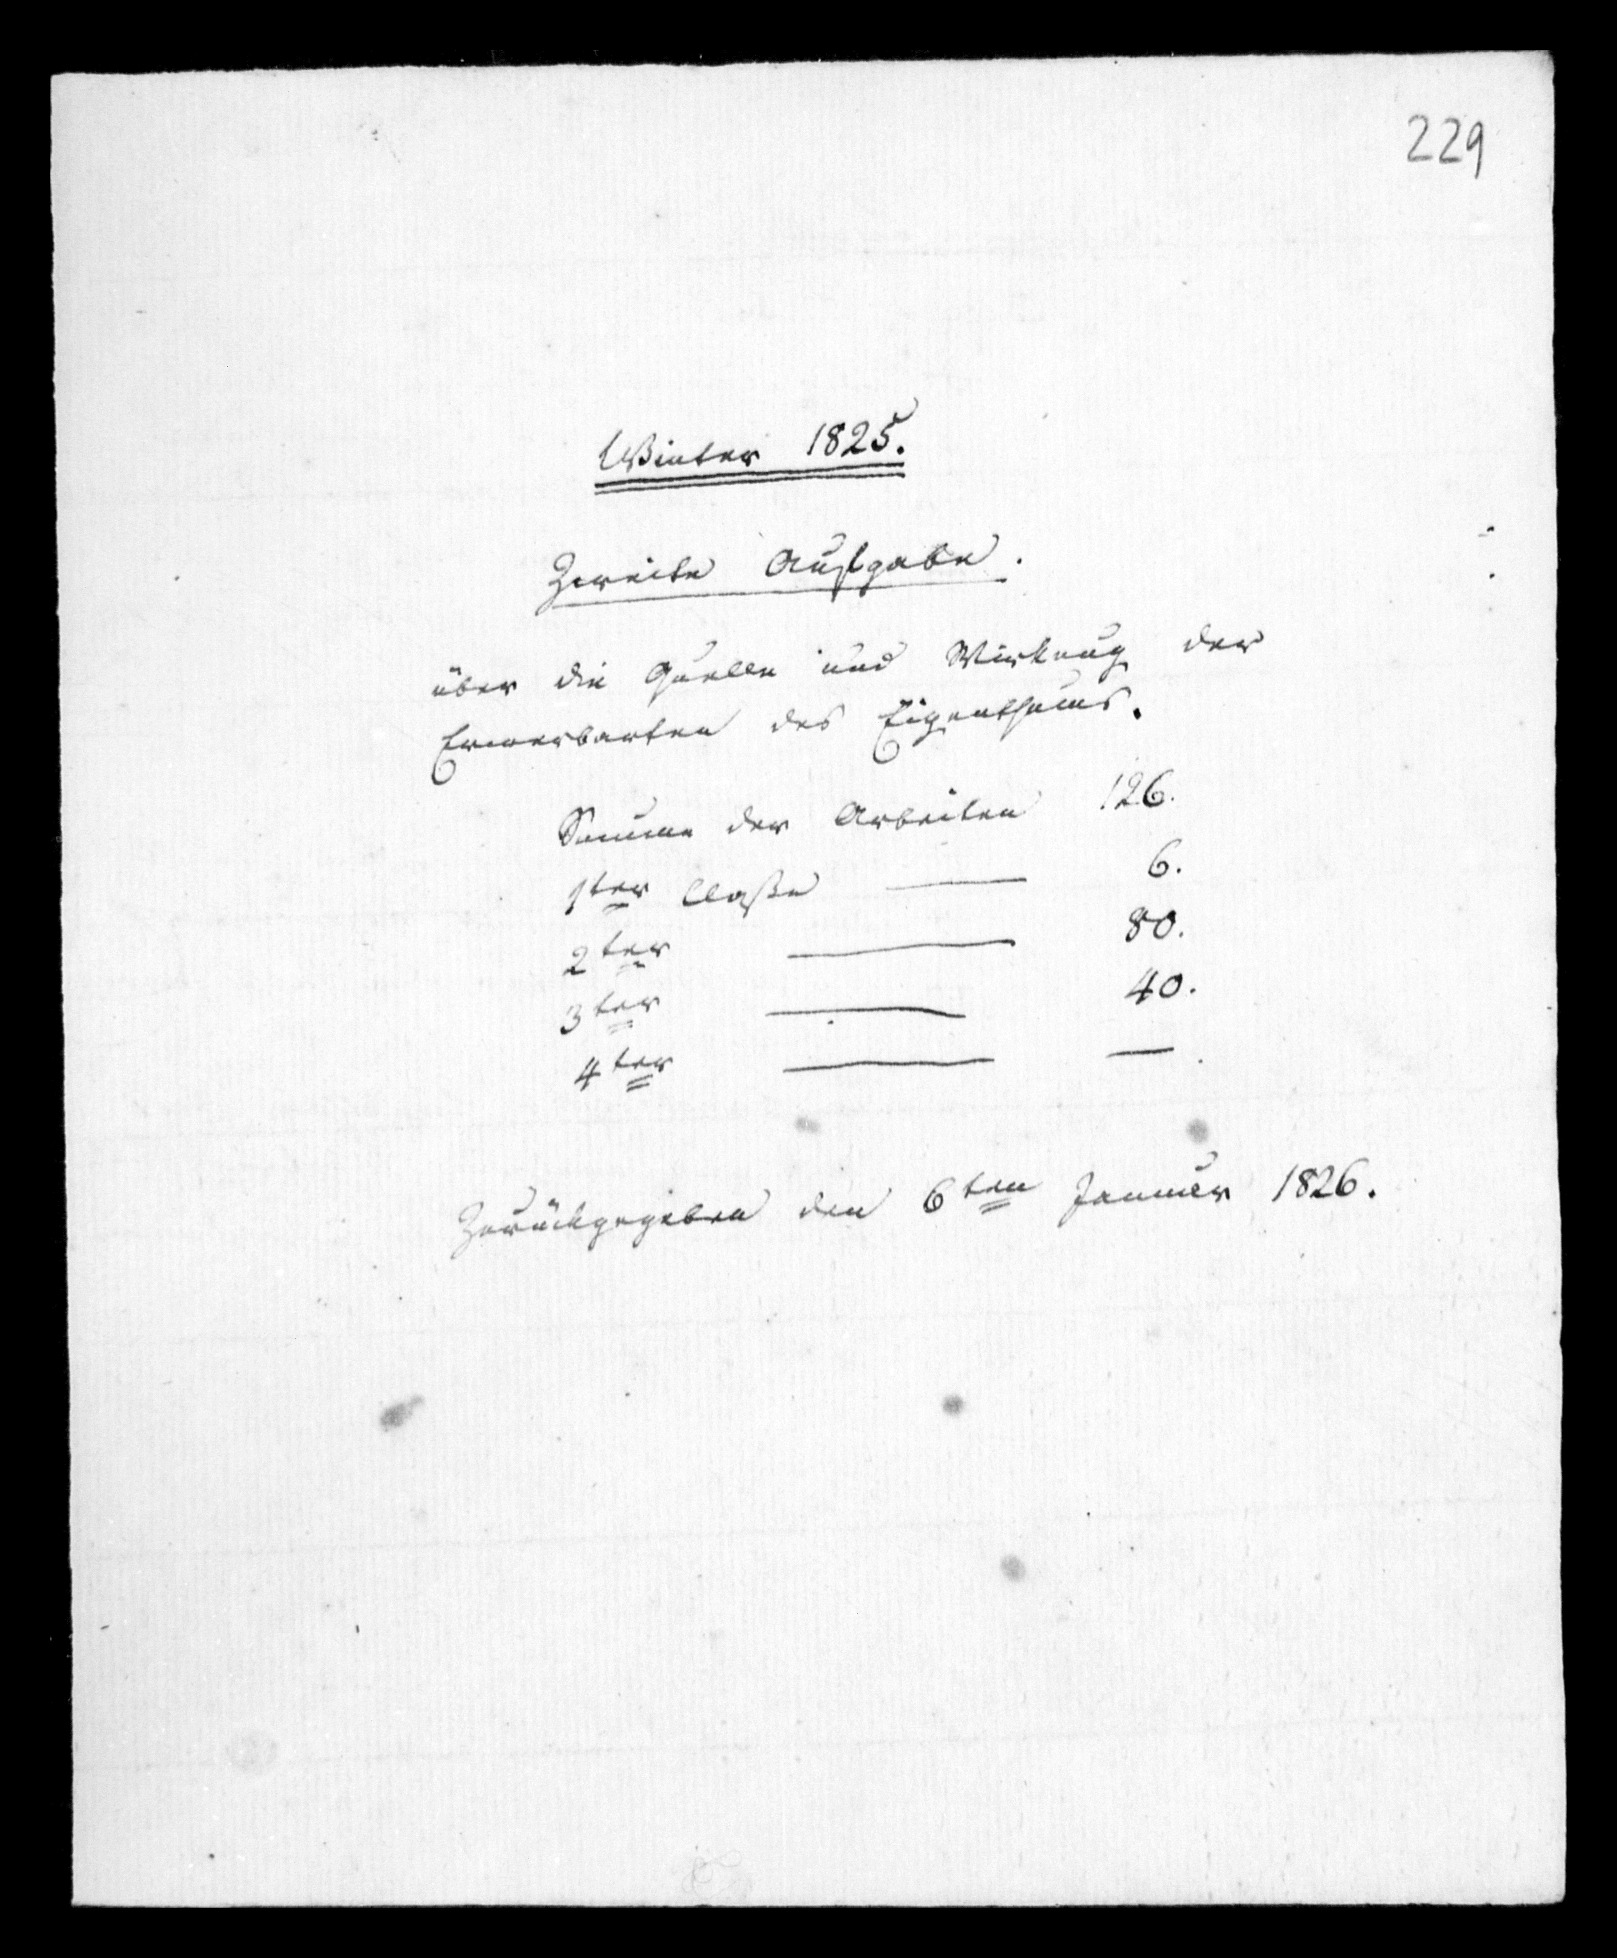 229
Winter 1825.
Zweite Aufgabe.
über die Quelle und Wirkung der
Erwerbarten des Eigenthums.
Summe der Arbeiten 126.
1ter Classe — 6.
2ter — 80.
3ter — 40.
4ter — —.
Zurückgegeben den 6ten Januar 1826.